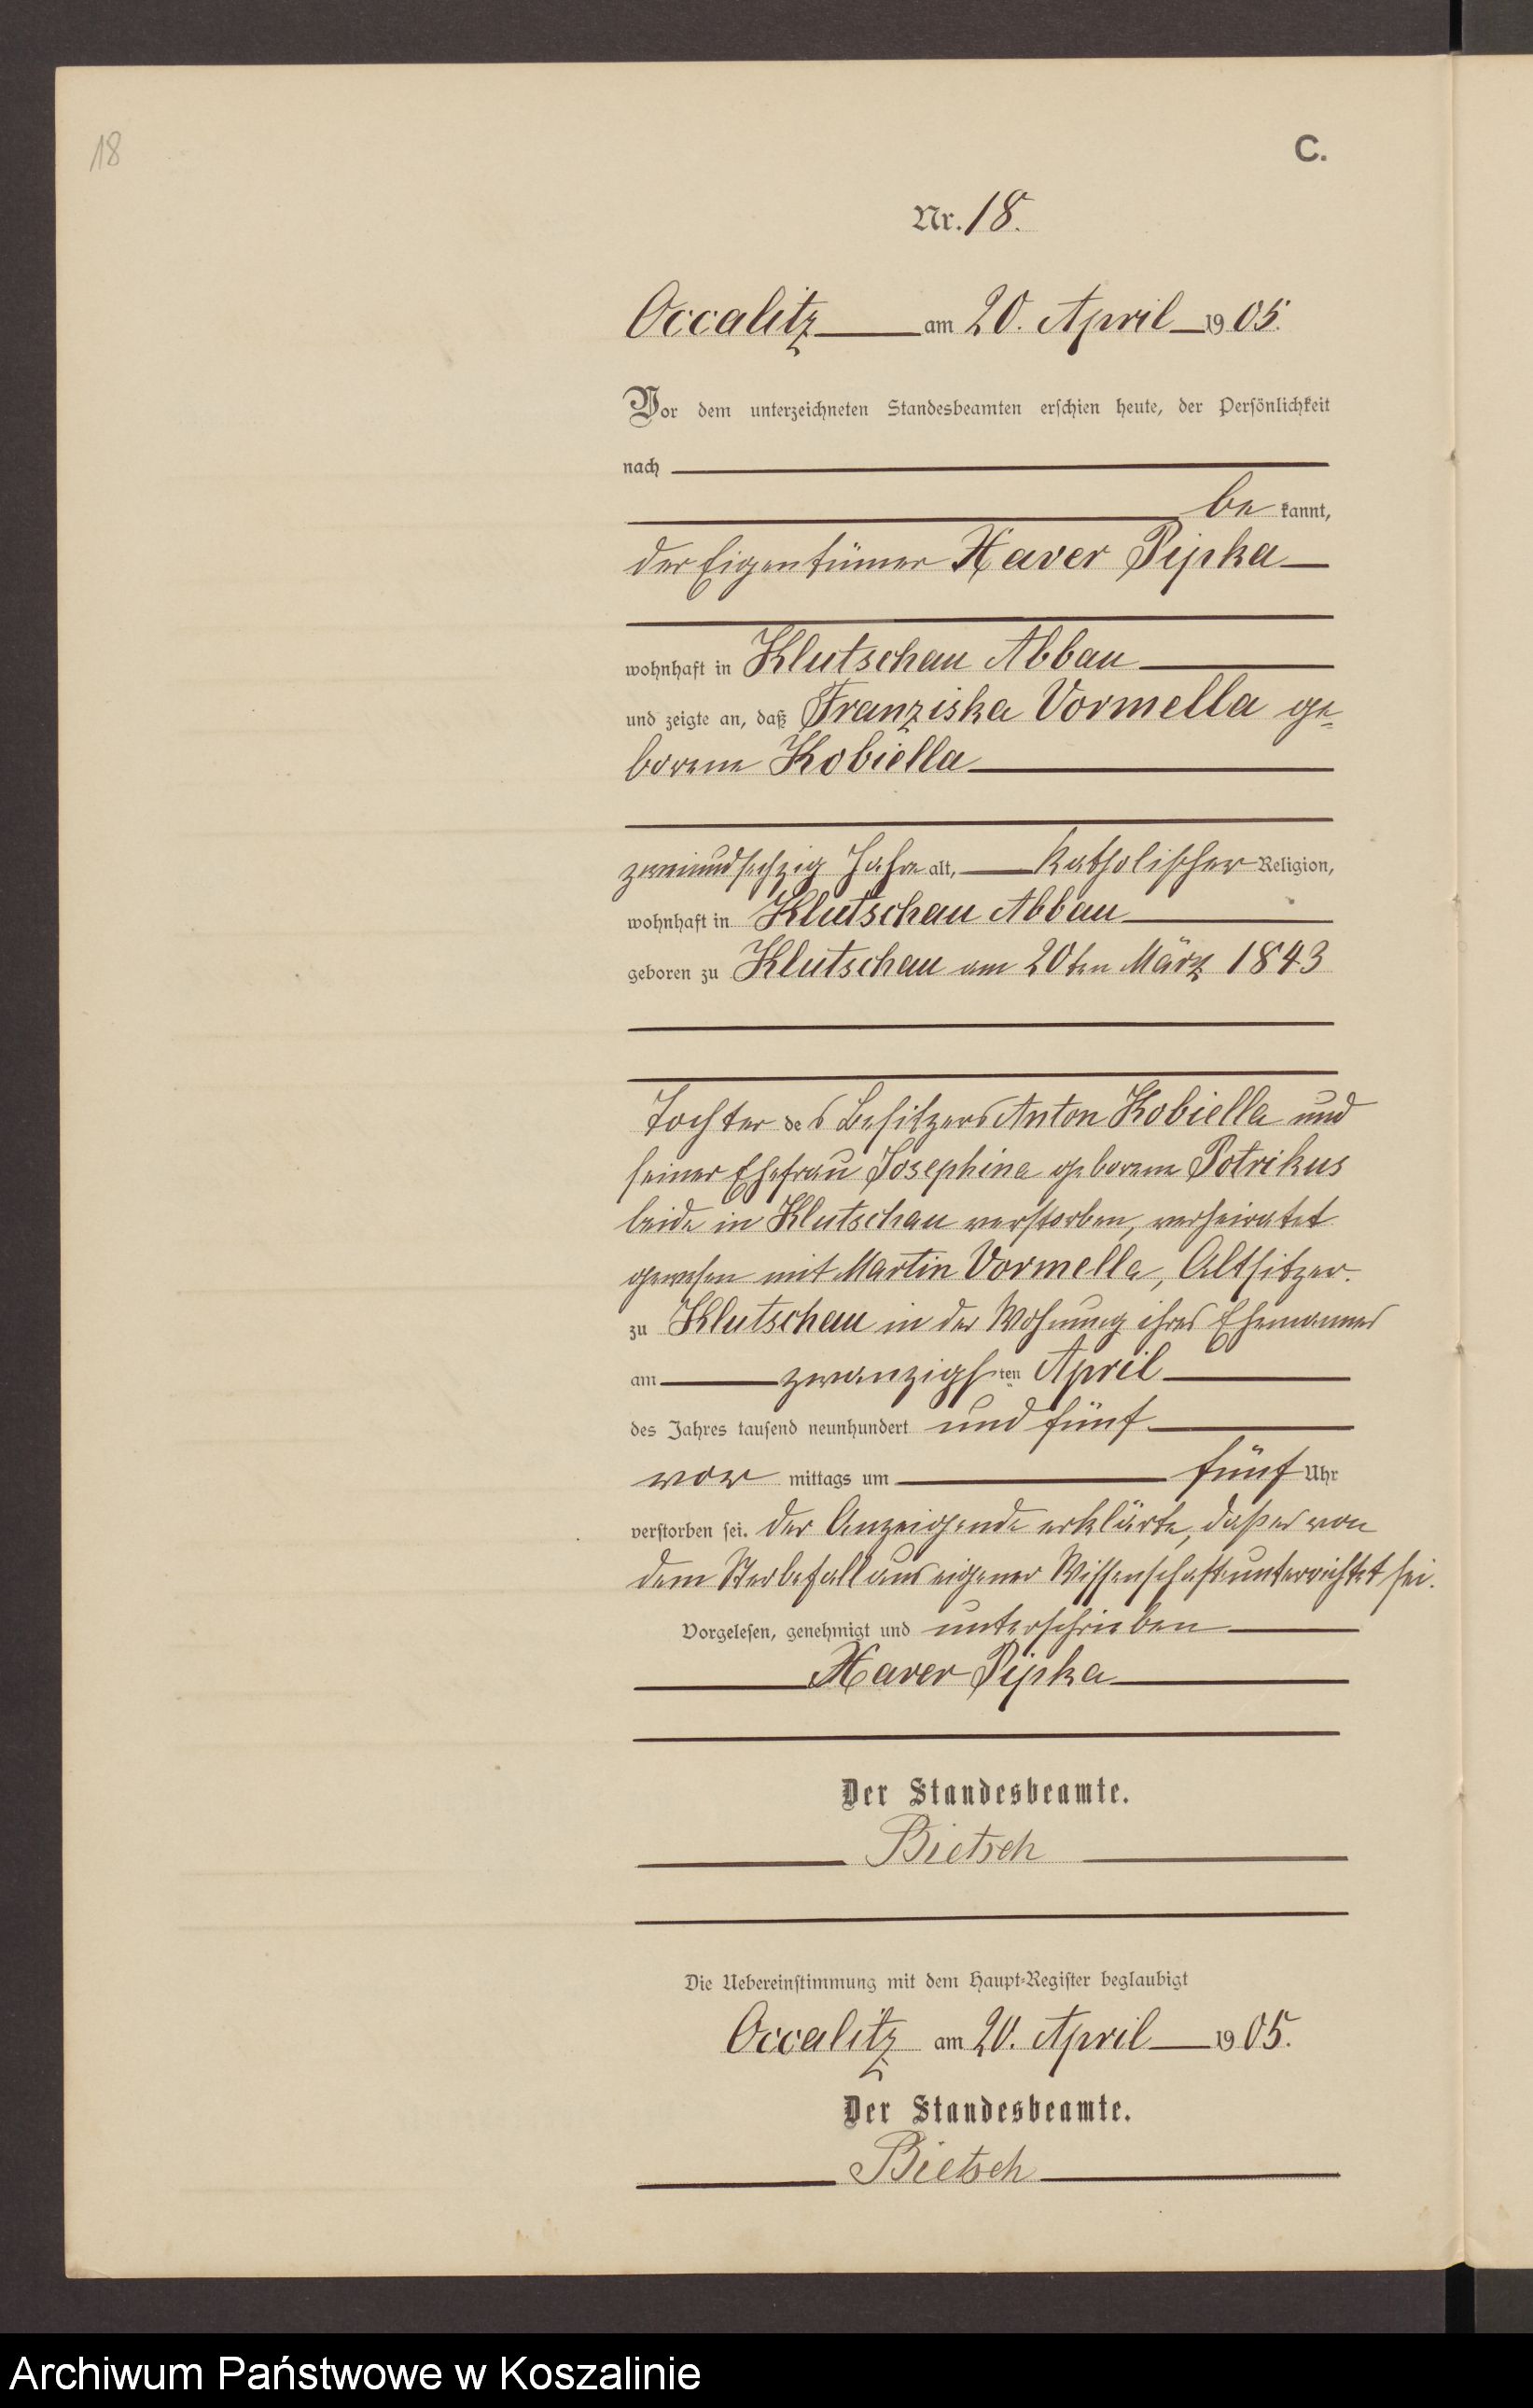 18
C.
Nr. 18.
Occalitz am 20. April 1905.
Vor dem unterzeichneten Standesbeamten erschien heute, der Persönlichkeit
nach
be kannt,
der Eigentümer Xaver Pipka
wohnhaft in Klutschau Abbau
und zeigte an, daß Franziska Vormella ge-
borene Kobiella
zweiundsechzig Jahre alt, katholischer Religion,
wohnhaft in Klutschau Abbau
geboren zu Klutschau am 20ten März 1843
Tochter des Besitzers Anton Kobiella und
seiner Ehefrau Josephina geborene Potrikus
beide in Klutschau verstorben, verheiratet
gewesen mit Martin Vormella, Altsitzer.
zu Klutschau in der Wohnung ihres Ehemannes
am zwanzigsten April
des Jahres tausend neunhundert und fünf
vor mittags um fünf Uhr
verstorben sei. Der Anzeigende erklärte, daß er von
dem Sterbefall aus eigener Wissenschaft unterrichtet sei.
Vorgelesen, genehmigt und unterschrieben
Xaver Pipka
Der Standesbeamte.
Bietsch
Die Uebereinstimmung mit dem Haupt-Register beglaubigt
Occalitz am 20. April 1905.
Der Standesbeamte.
Bietsch
Archiwum Państwowe w Koszalinie